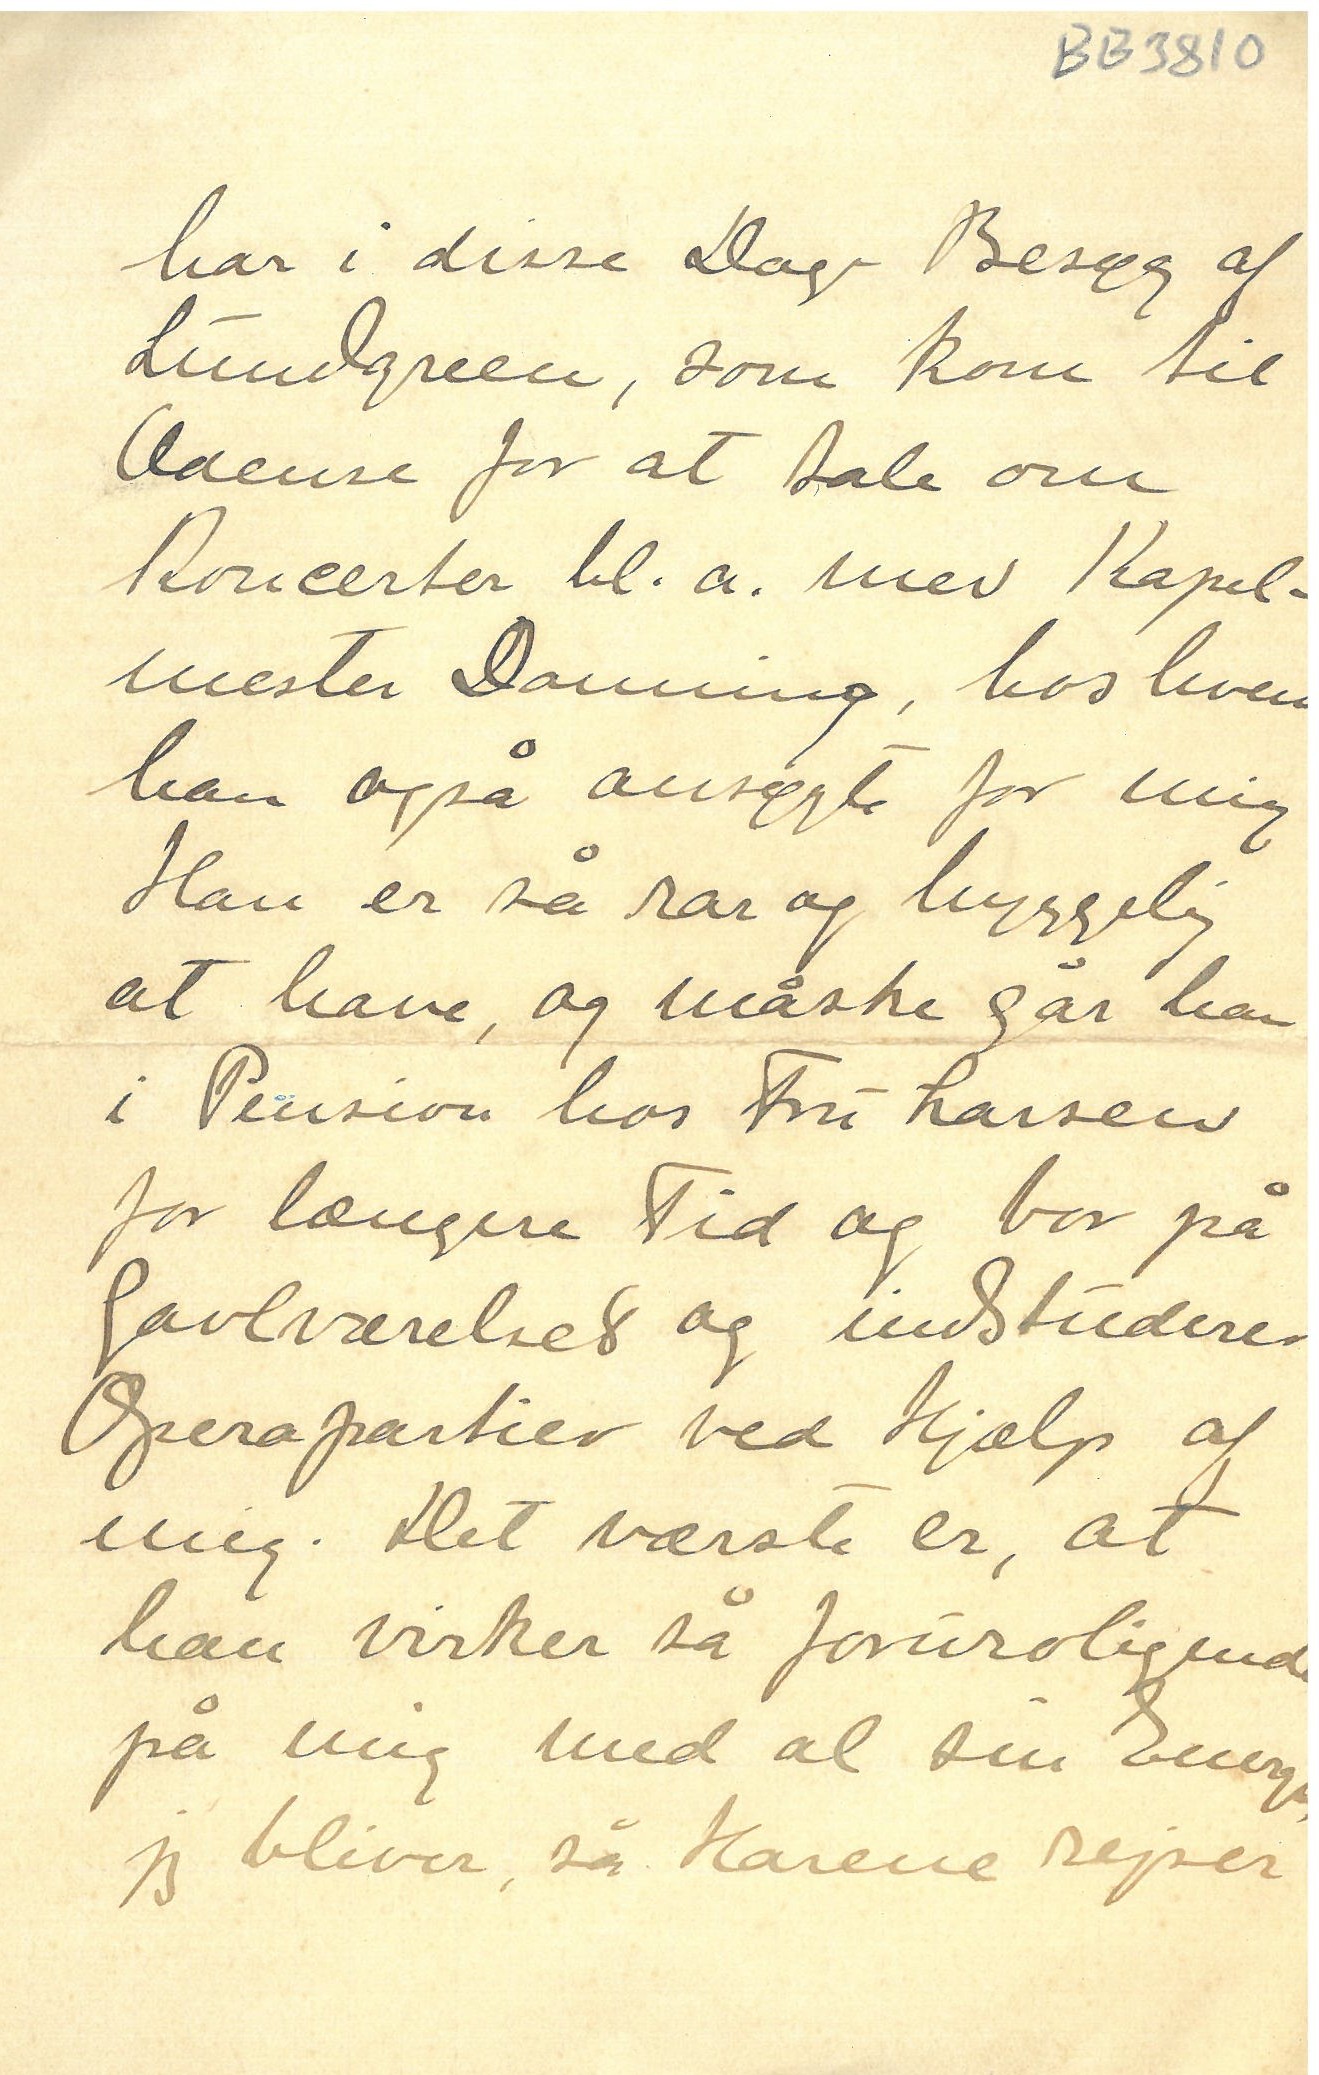 BB3810
har i disse Dage Besøg af
Lundgreen, som kom til
Odense for at tale om
Koncerter bl. a. med Kapel-
mester Danning, hos hvem
han også ansøgte for mig
Han er så rar og hyggelig
at have, og måske går han
i Pension hos Fru Larsen
for længere Tid og bor på
Gavlværelset og indstuderer
Operapartier ved Hjælp af
mig. Det værste er, at
han virker så foruroligende
på mig med al sin Energi,
jeg bliver, så Harene rejser